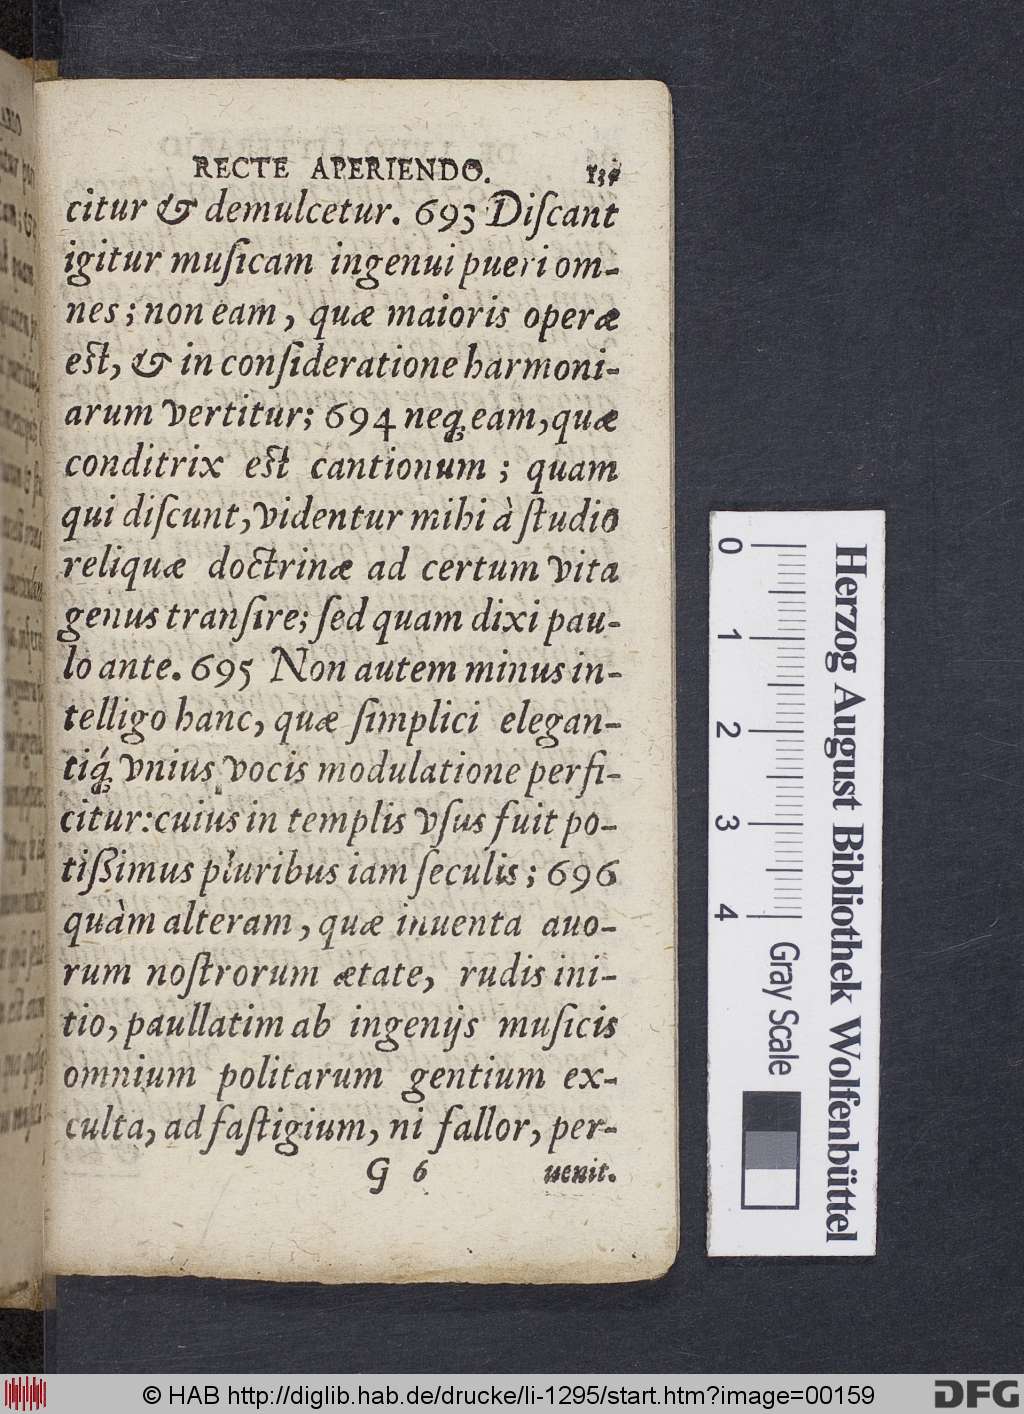 RECTE APERIENDO. 139
citur & demulcetur. 693 Diſcant
igitur muſicam ingenui pueri om-
nes; non eam, quæ maioris operæ
est, & in conſideratione harmoni-
arum vertitur; 694 neq́; eam, quæ
conditrix est cantionum; quam
qui diſcunt, videntur mihi à ſtudio
reliquæ doctrinæ ad certum vita
genus tranſire; ſed quam dixi pau-
lo ante. 695 Non autem minus in-
telligo hanc, quæ ſimplici elegan-
tiq́; vnius vocis modulatione perfi-
citur: cuius in templis vſus fuit po-
tißimus pluribus iam ſeculis; 696
quàm alteram, quæ inuenta auo-
rum noſtrorum ætate, rudis ini-
tio, paullatim ab ingenijs muſicis
omnium politarum gentium ex-
culta, ad faſtigium, ni fallor, per-
G 6 uenit.
0 1 2 3 4 Gray Scale
Herzog August Bibliothek Wolfenbüttel
© HAB http://diglib.hab.de/drucke/li-1295/start.htm?image=00159
DFG